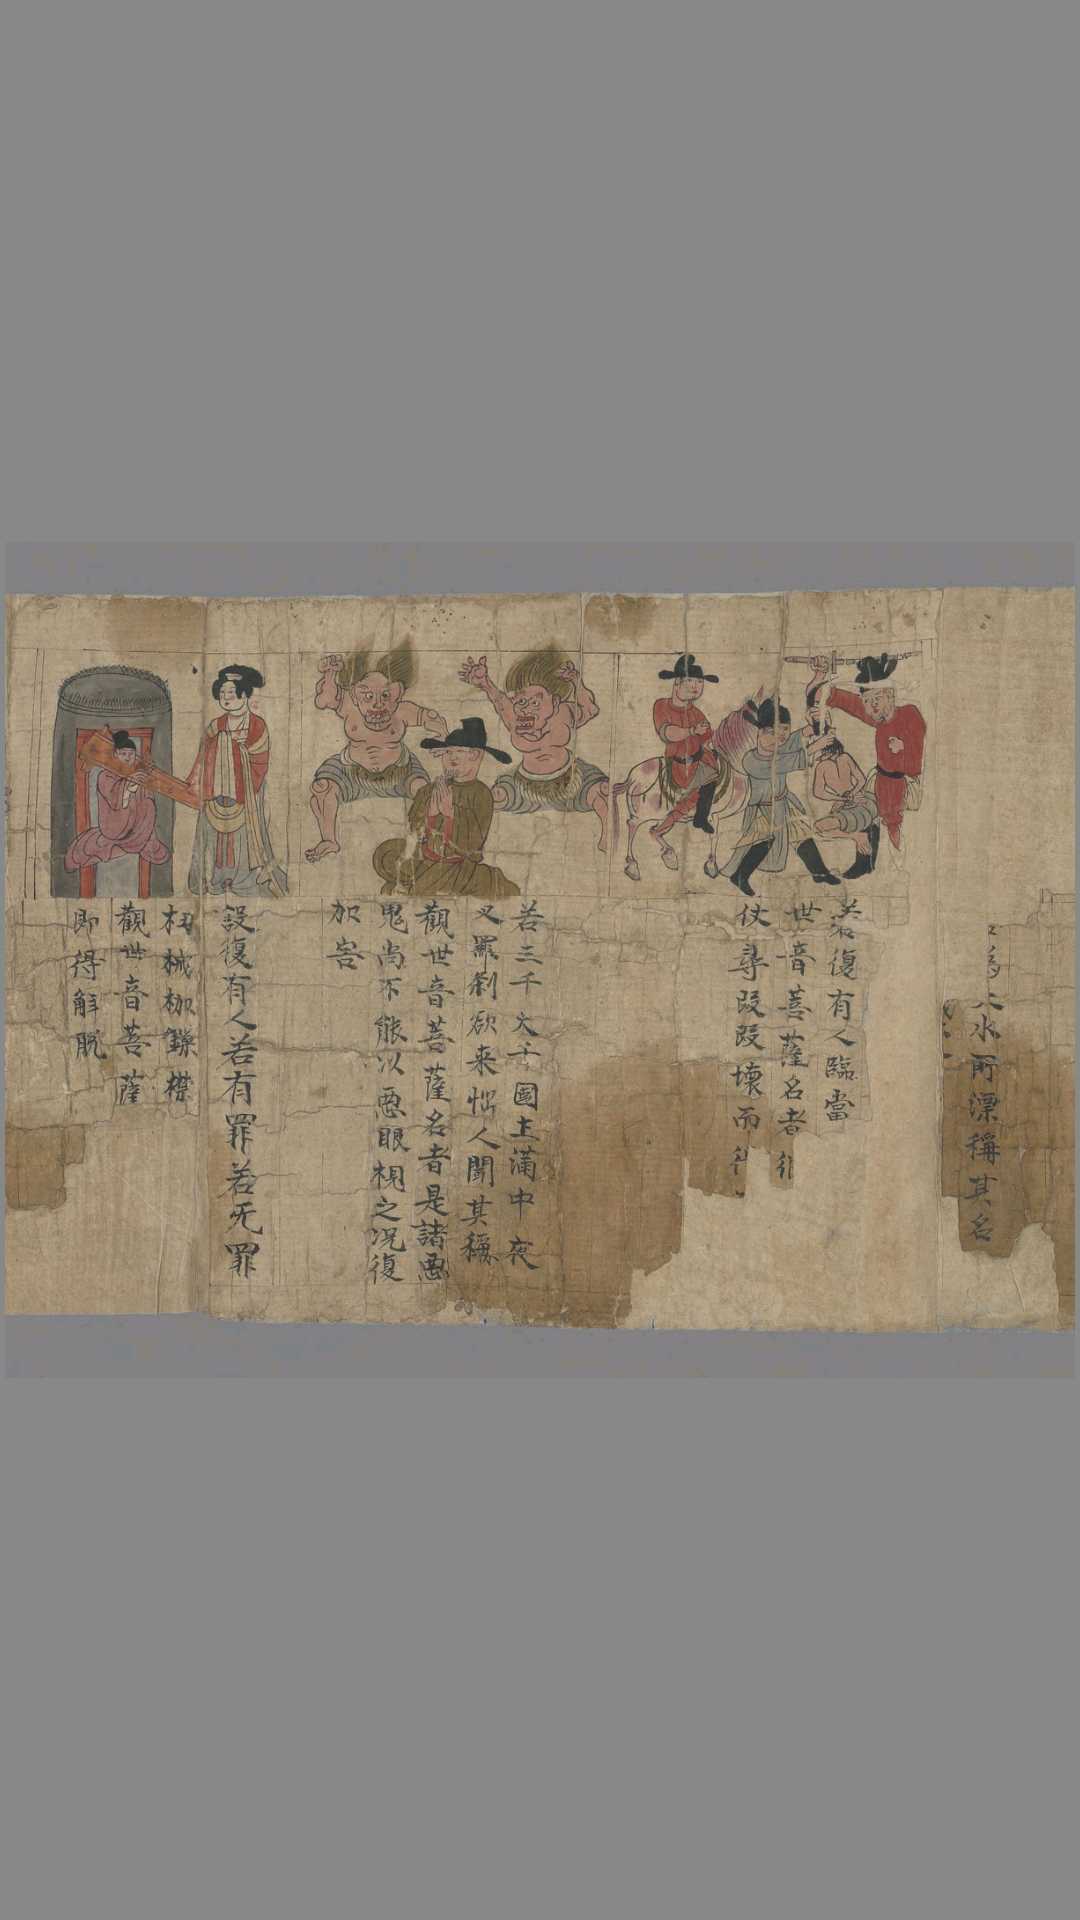 為大水所漂稱其名
若復有人臨當
世音菩薩名者彼
仗尋段段壞而
若三千大千國土滿中夜
叉羅刹欲来惱人聞其稱
觀世音菩薩名者是諸惡
鬼尚不能以惡眼視之况復
加害
設復有人若有罪若无罪
杻械枷鏁襟
觀世音菩薩
即得解脱